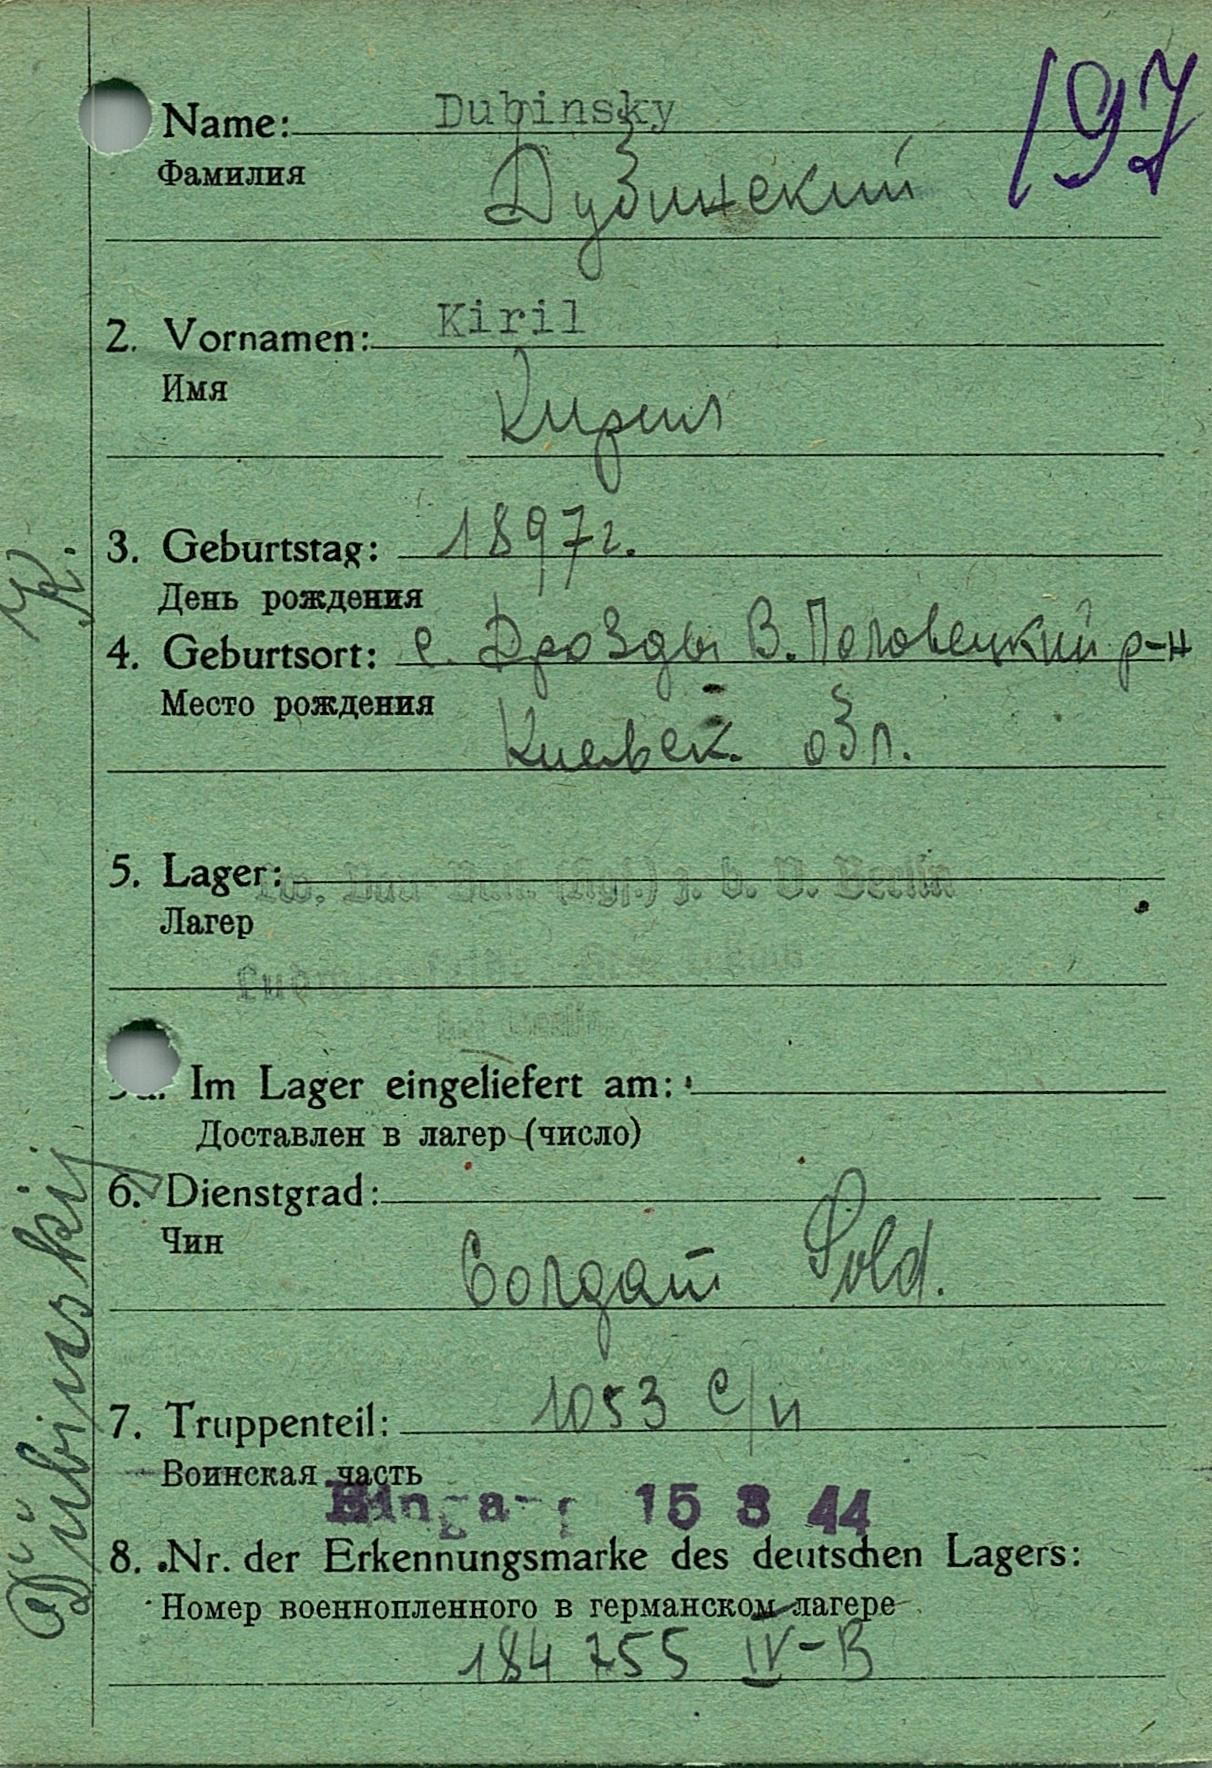 197
Name: Dubinsky
Фамилия Дубинский
2. Vornamen: Kiril
Имя Кирил
3. Geburtstag: 1897г.
День рождения
4. Geburtsort: с. Дрозды В. Половецкий р-н
Место рождения
Киевск. обл.
5. Lager: Lw. Bau- (Kgf.) z. b. V. Berlin
Лагер
Im Lager eingeliefert am:
Доставлен в лагер (число)
6. Dienstgrad:
Чин
Солдат Sold.
7. Truppenteil: 1053 с/п
Воинская часть
Eingang 15 3 44
8. Nr. der Erkennungsmarke des deutschen Lagers:
Номер военнопленного в германском лагере
184755 IV-B
Dübinskij K.